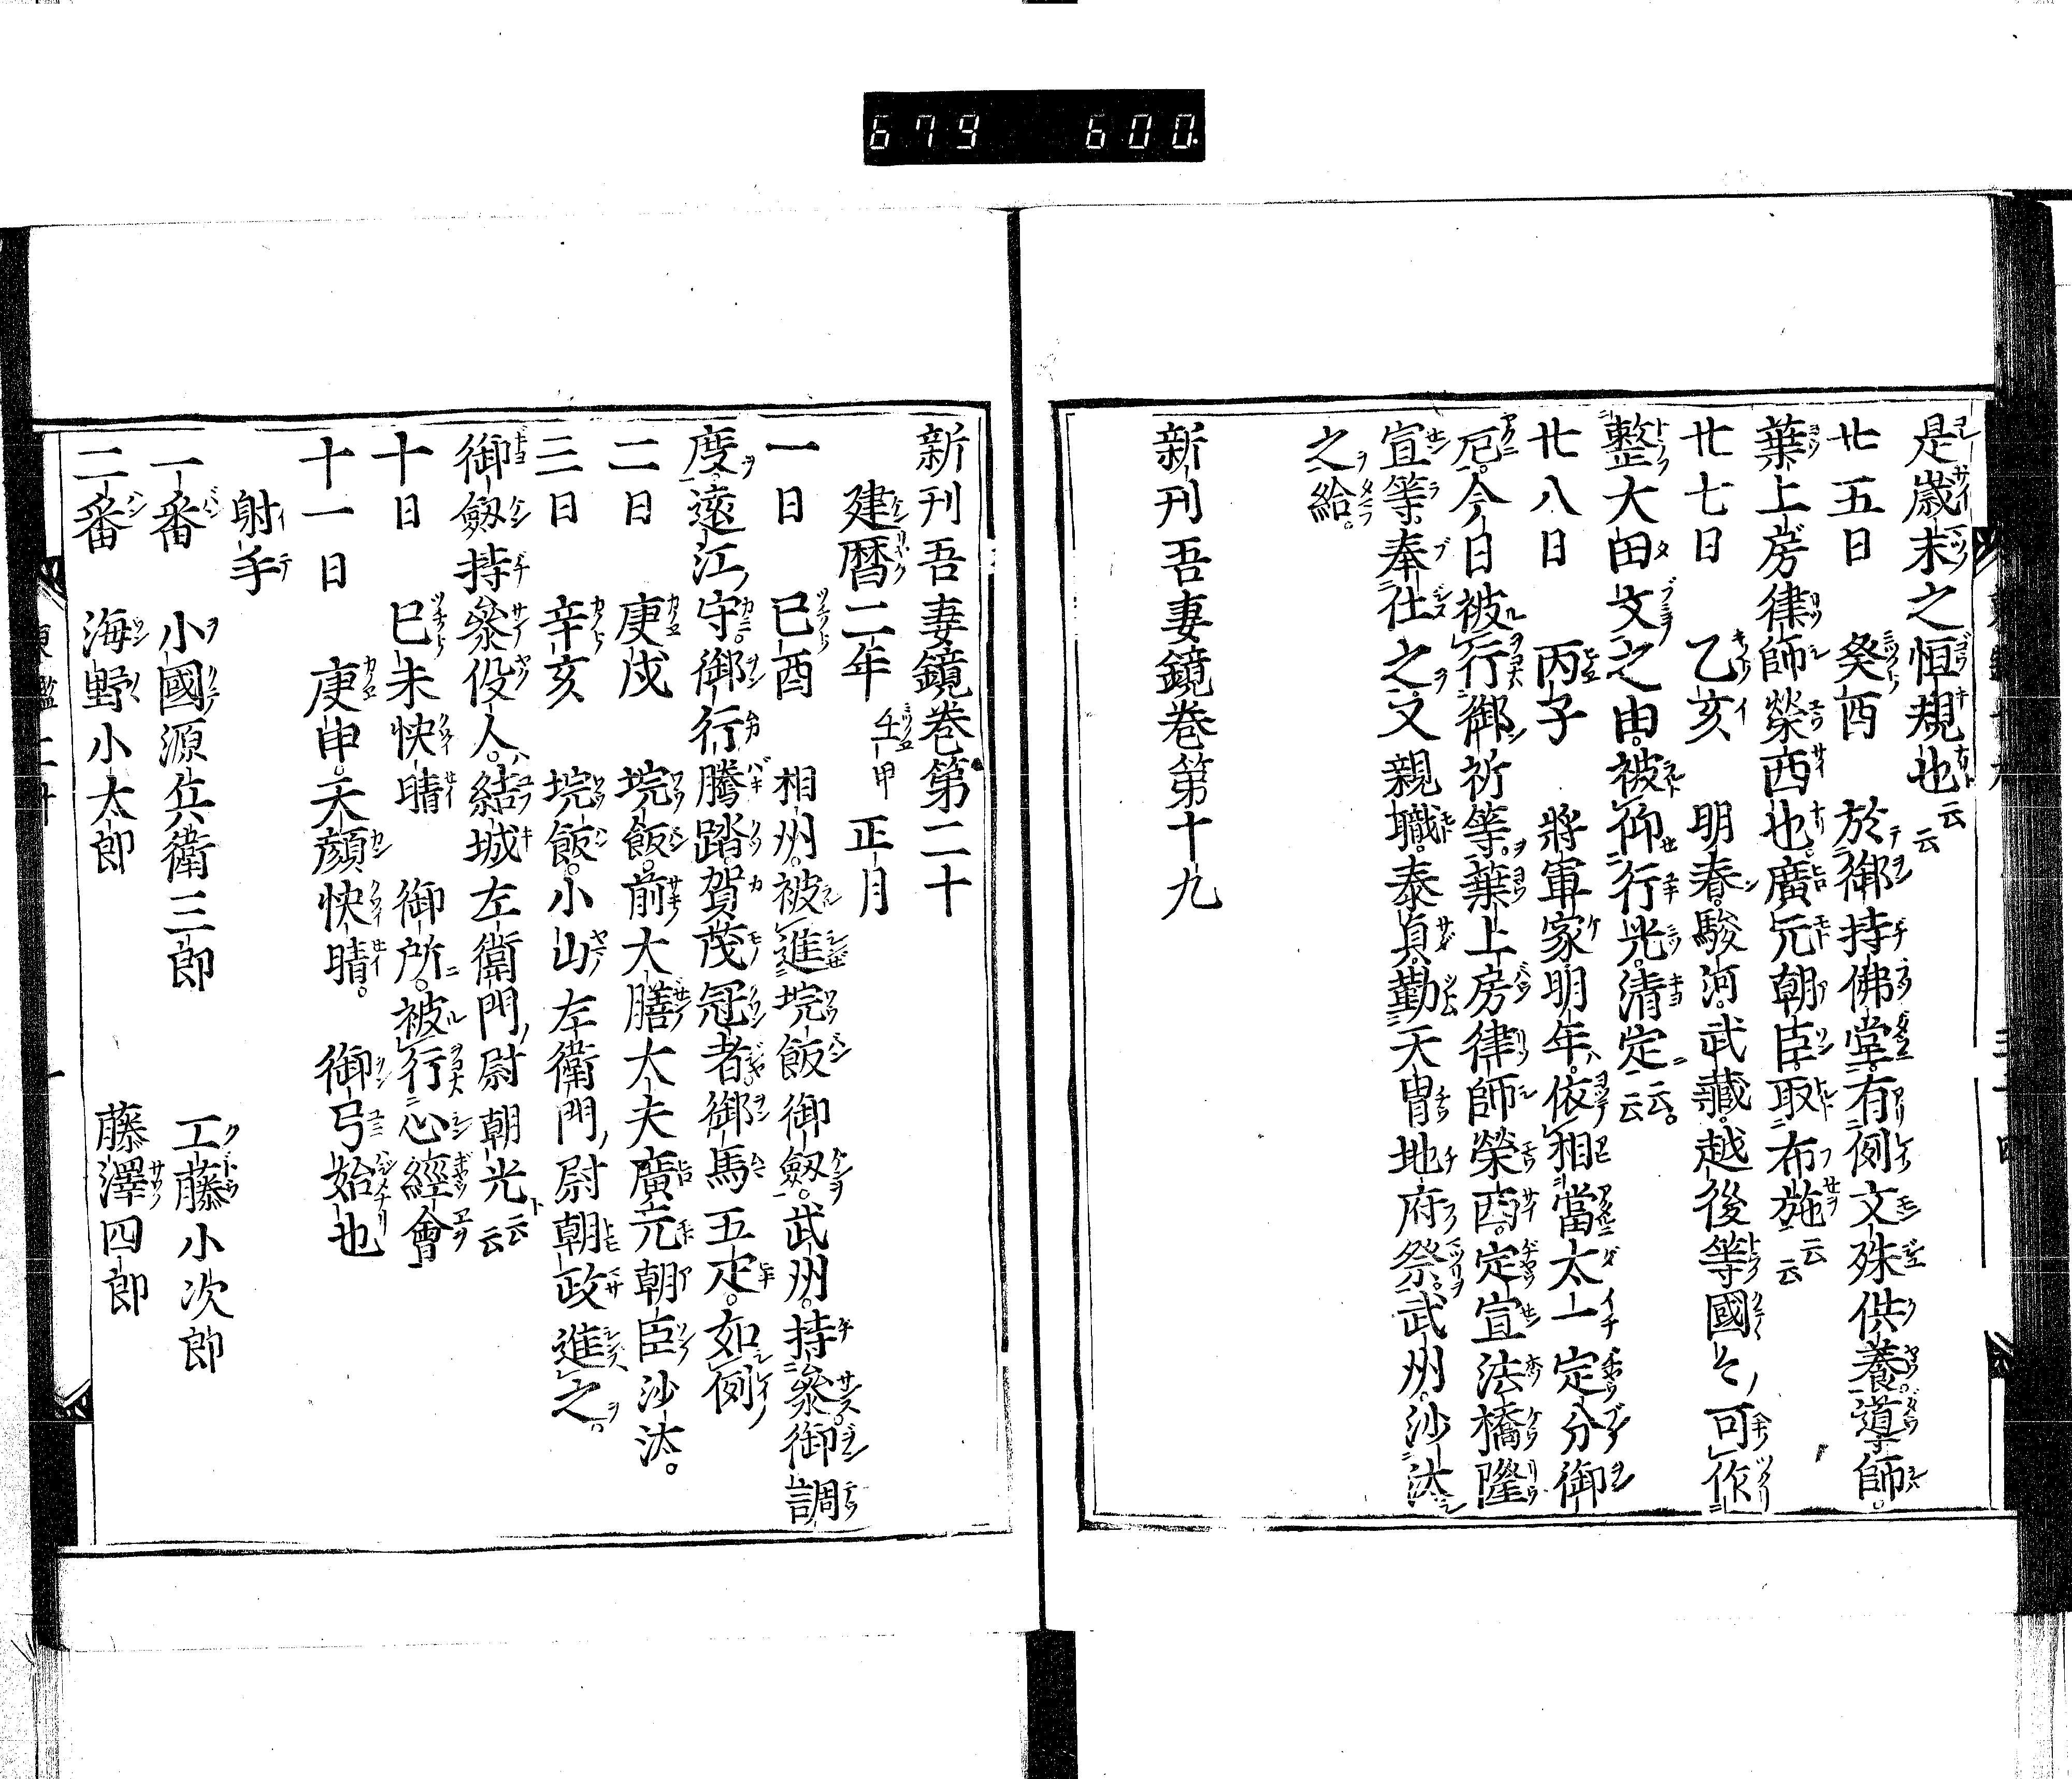 679 600.
是歳末之恒規也云云
廿五日 癸酉 於御持佛堂有例文殊供養導師
葉上房律師榮西也廣元朝臣取布施云云
廿七日 乙亥 明春駿河武藏越後等國々可作
整大田文之由被仰行光清定云云
廿八日 丙子 將軍家明年依相當太一定分御
厄今日被行御祈等葉上房律師榮西定宣法橋隆
宣等奉仕之又親職泰貞勤天冑地府祭武州沙汰
之給
新刊吾妻鏡巻第十九
新刊吾妻鏡巻第二十
建暦二年壬申正月
一日 已酉 相州被進埦飯御劔武州持參御調
度遠江守御行騰踏賀茂冠者御馬五疋如例
二日 庚戌 埦飯前大膳大夫廣元朝臣沙汰
三日 辛亥 埦飯小山左衛門尉朝政進之
御劔持參役人結城左衛門尉朝光云云
十日 已未快晴 御所被行心經會
十一日 庚申天顔快晴 御弓始也
射手
一番 小國源兵衛三郎 工藤小次郎
二番 海野小太郎 藤澤四郎